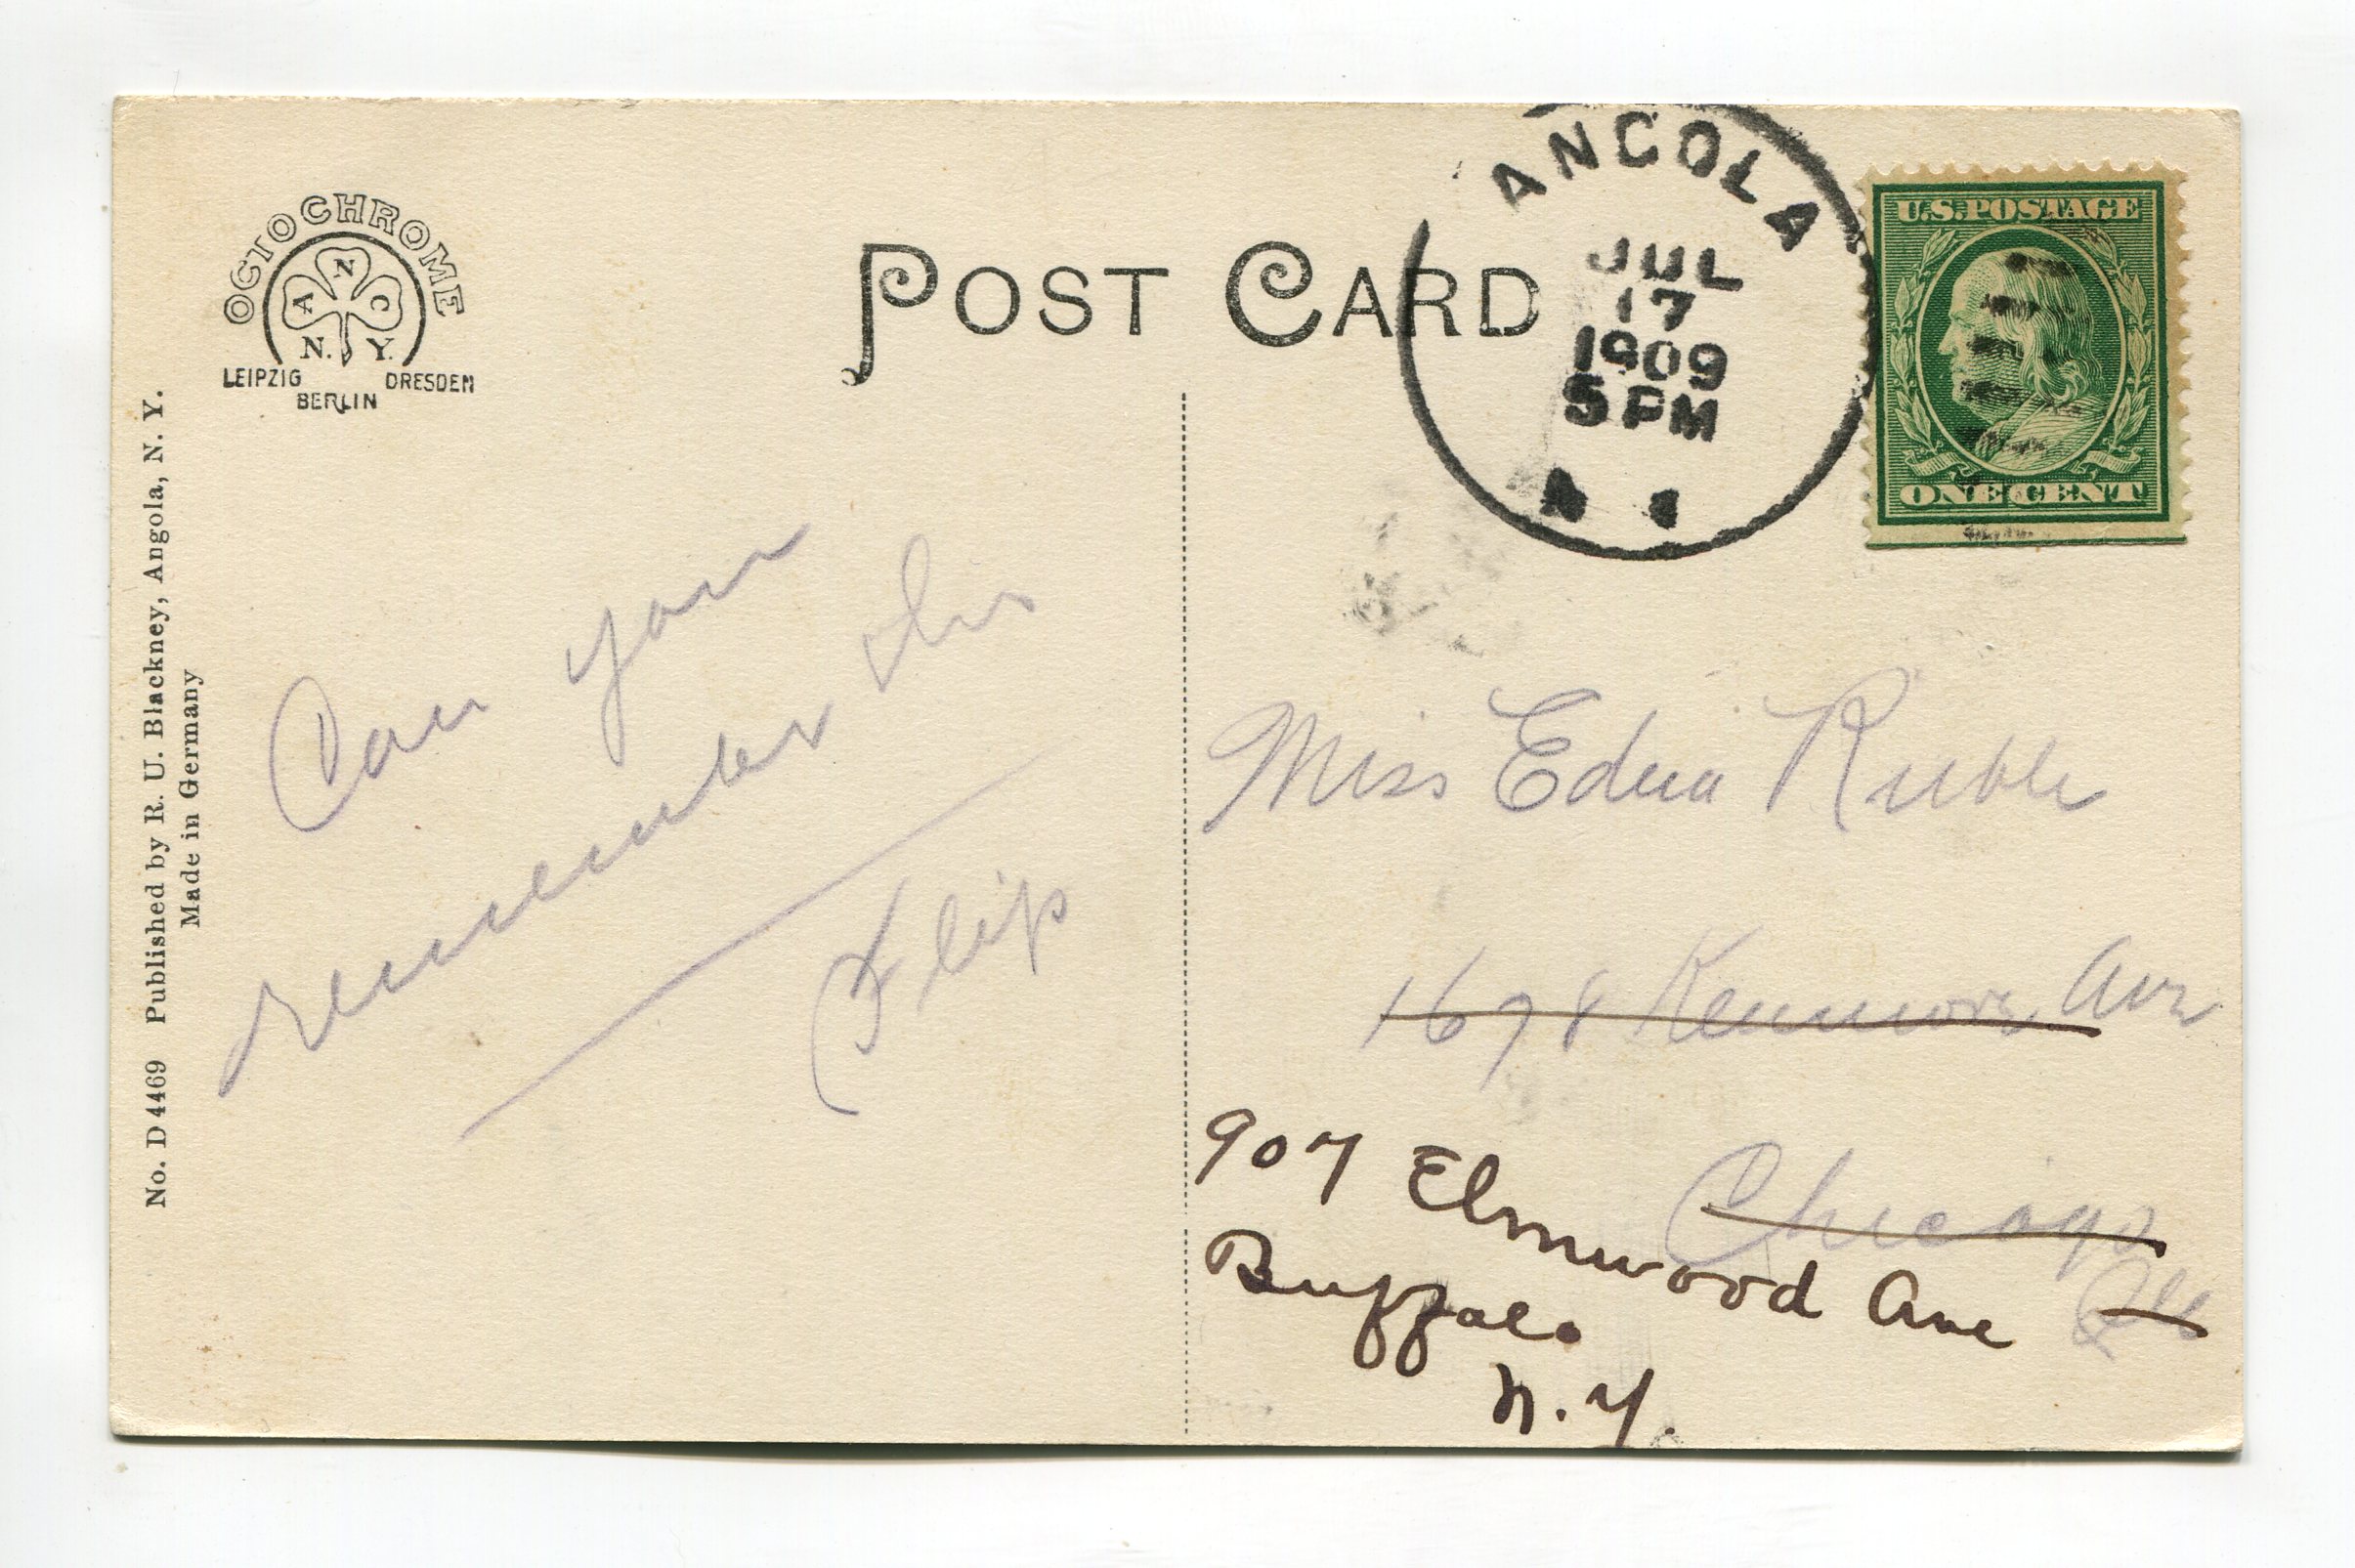 OCTOCHROME
A N C
N. Y.
LEIPZIG DRESDEN
BERLIN
POST CARD
ANGOLA
JUL
17
1909
5 PM
U.S. POSTAGE
ONE CENT
No. D 4469 Published by R. U. Blackney, Angola, N. Y.
Made in Germany
Can you
remember this
Flip
Miss Edna Ruble
1678 Kenmore Ave
Chicago
Ills
907 Elmwood Ave
Buffalo
N.Y.